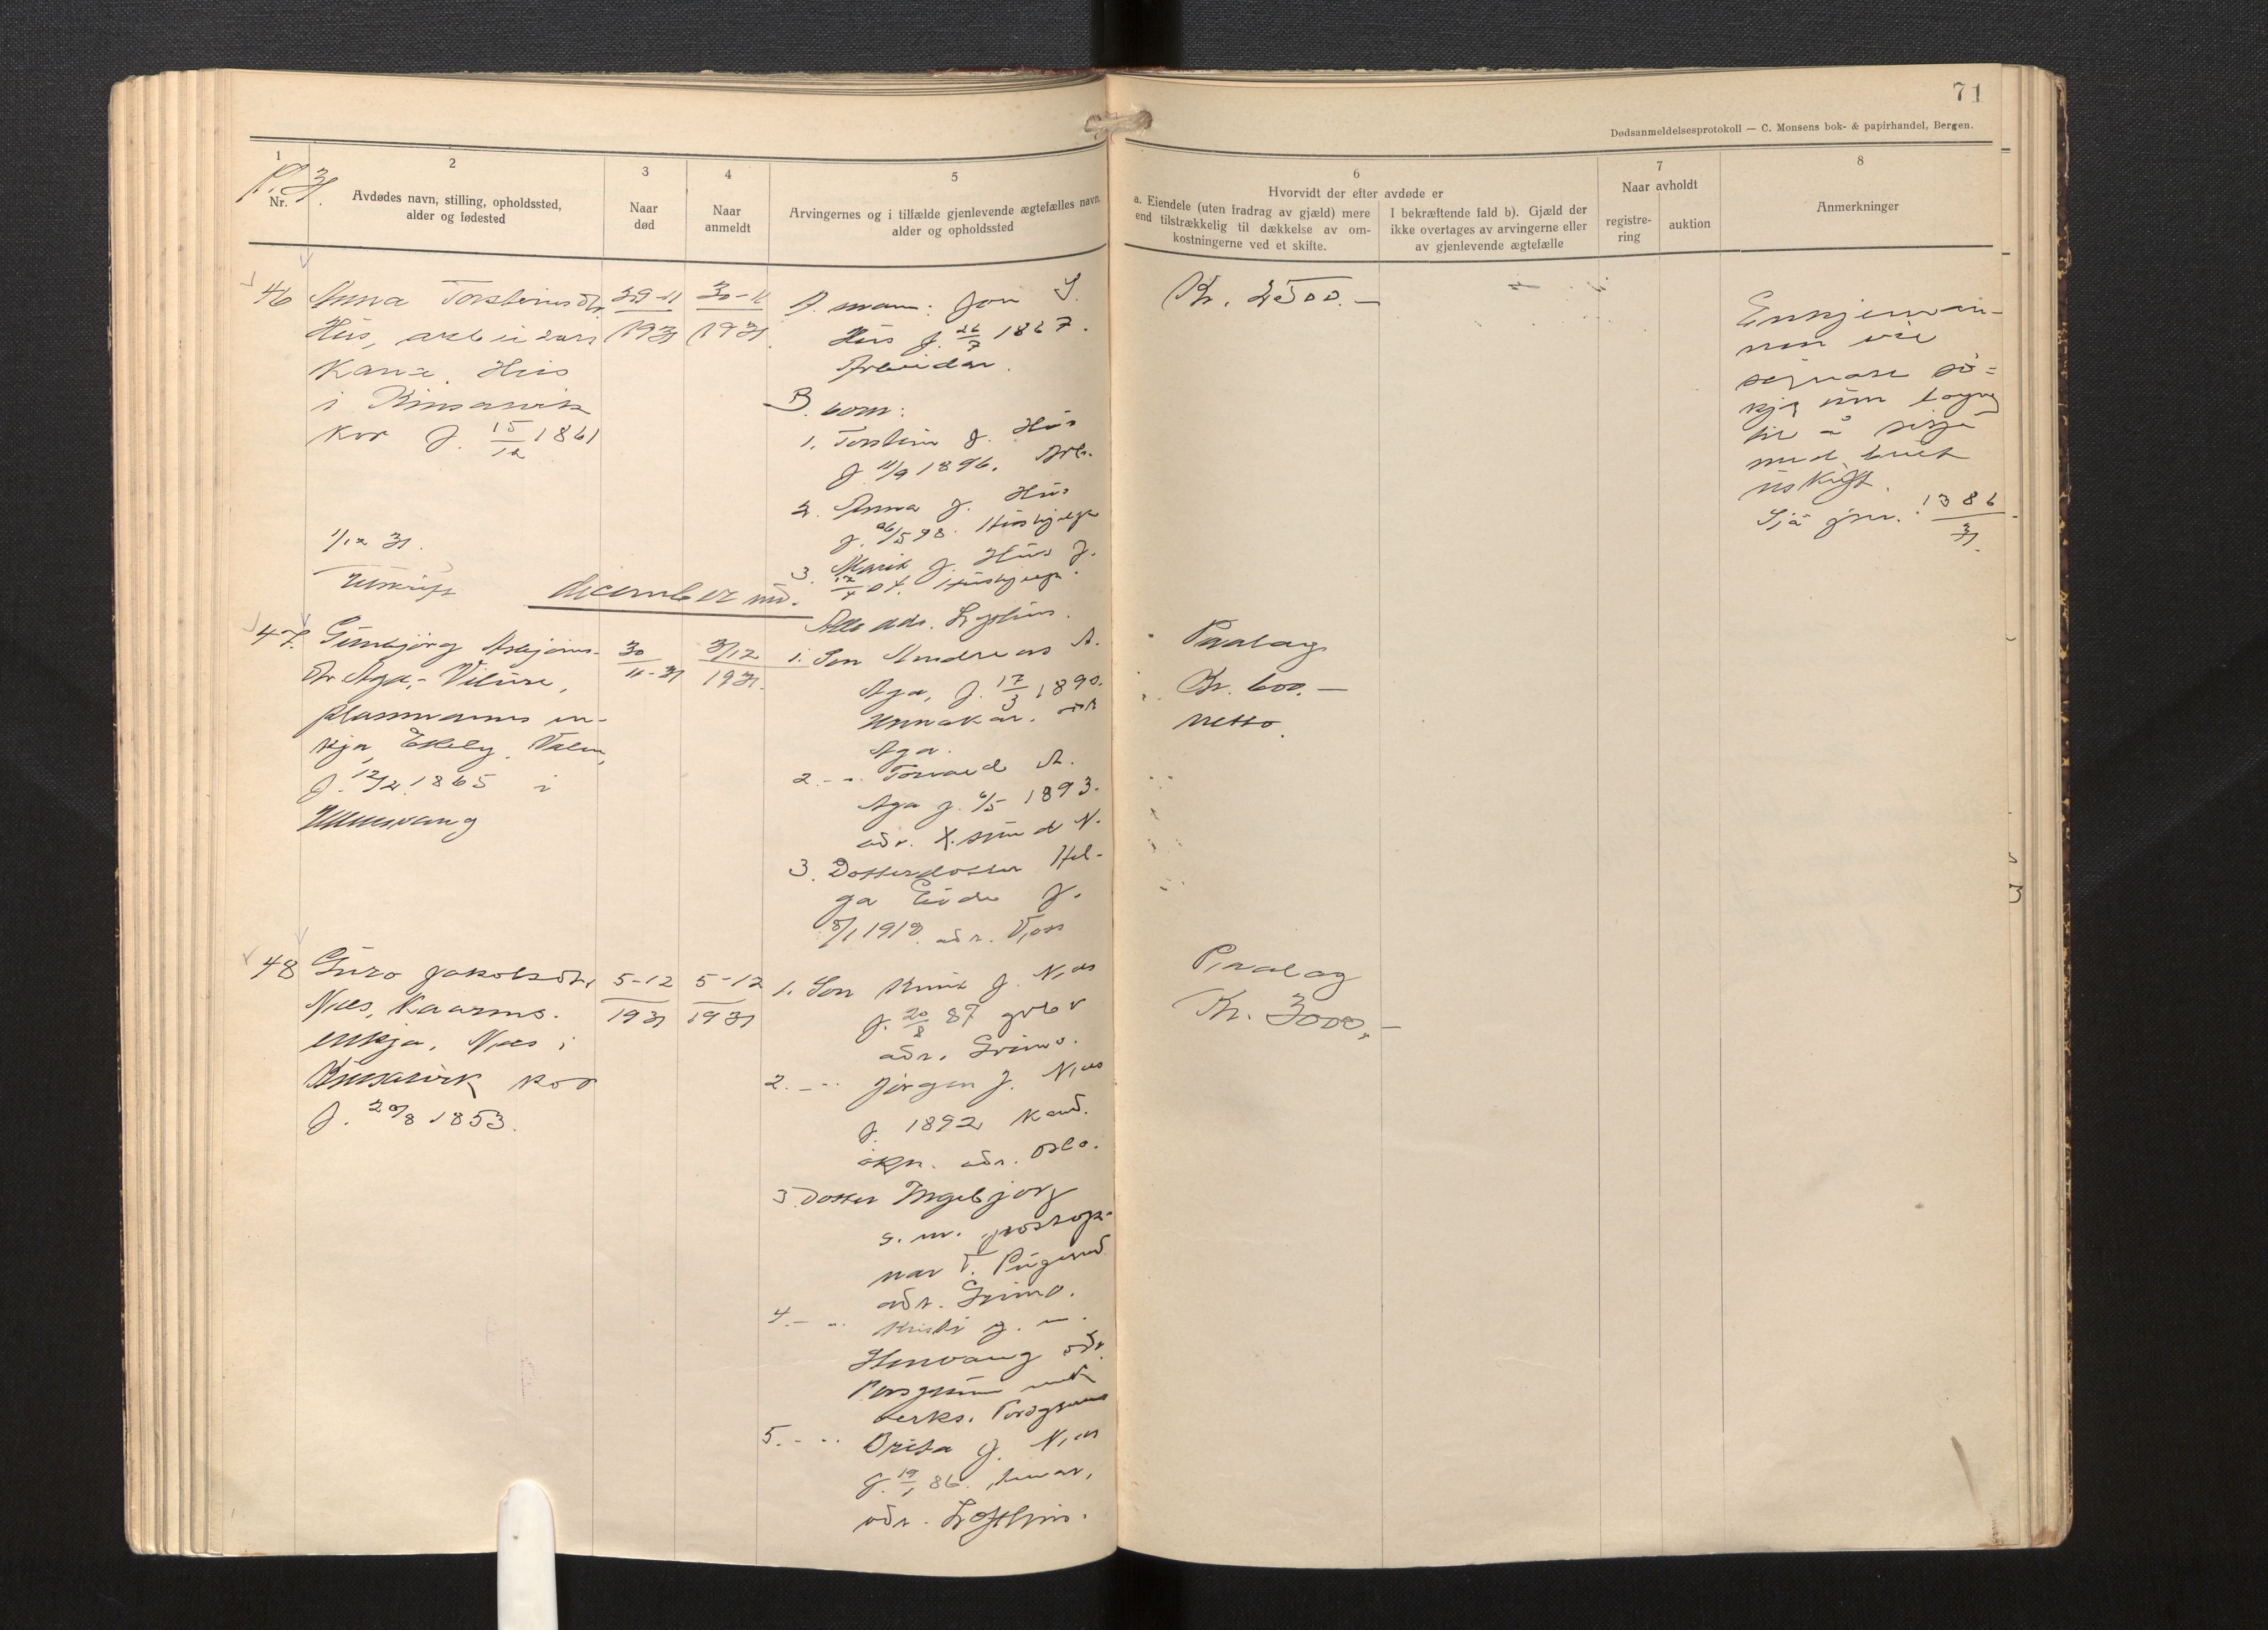 71
Dødsanmeldelsesprotokoll — C. Monsens bok- & papirhandel, Bergen.
1
Nr.
2
Avdødes navn, stilling, opholdssted,
alder og fødested
3
Naar
død
4
Naar
anmeldt
5
Arvingernes og i tilfælde gjenlevende ægtefælles navn,
alder og opholdssted
6
Hvorvidt der efter avdøde er
a. Eiendele (uten fradrag av gjæld) mere
end tilstrækkelig til dækkelse av om-
kostningerne ved et skifte.
I bekræftende fald b). Gjæld der
ikke overtages av arvingerne eller
av gjenlevende ægtefælle
7
Naar avholdt
registre-
ring
auktion
8
Anmerkninger
46
Anna Torsteinsdtr.
Hus, arbeidars
kona Hus
i Kinsarvik
kor f. 15/12 1861
29-11
1931
30-11
1931
A. mann: Jon
Hus f. 26/7 1867.
Arbeidar.
B. born:
1. Torstein J. Hus
f. 11/9 1896. Arb.
2. Anna J. Hus
f. 98. Hushjelp
3. Marit J. Hus f.
Hushjelp.
Alle adr. Lofthus.
Kr. 2500.—
Enkjeman-
nen vil
sø-
kja um løyve
til å sitja
med buet
uskift.
Sjå jnr. 1386/31.
1/12 31.
Utskrift
december md.
47.
Gunbjørg Asbjørns-
dtr Aga,
plassmanns en-
kja,
f. 12/2 1865 i
Ullensvang
30
11-31
3/12
1931.
1. Son Andreas A.
Aga, f. 17/3 1890.
adr
Aga.
2. - " - Torvald A.
Aga f. 6/5 1893.
adr. X.sund N.
3. Dotterdotter Hel-
ga Eide f.
8/1 1918. adr. Voss
Paalag
Kr. 600.—
netto.
48
Guro Jakobsdtr
Næs, kaarms.
enkja, Næs i
Kinsarvik kor
f. 20/8 1853.
5-12
1931
5-12
1931
1. Son Knut J. Næs
f. 20/8 87 gbr
adr. Grimo.
2. - " - Jørgen J. Næs
f. 1892 kand.
økn. adr. Oslo.
3. Dotter Ingebjørg
g. m. postop-
nar T.
adr. Grimo.
4. - " - Kristi g. m.
adr.
Porsgrunn
verks. Porsgrunn
5. - " - Brita J. Næs
f. 19/1 86.
adr. Lofthus.
Paalag
Kr. 3000,—